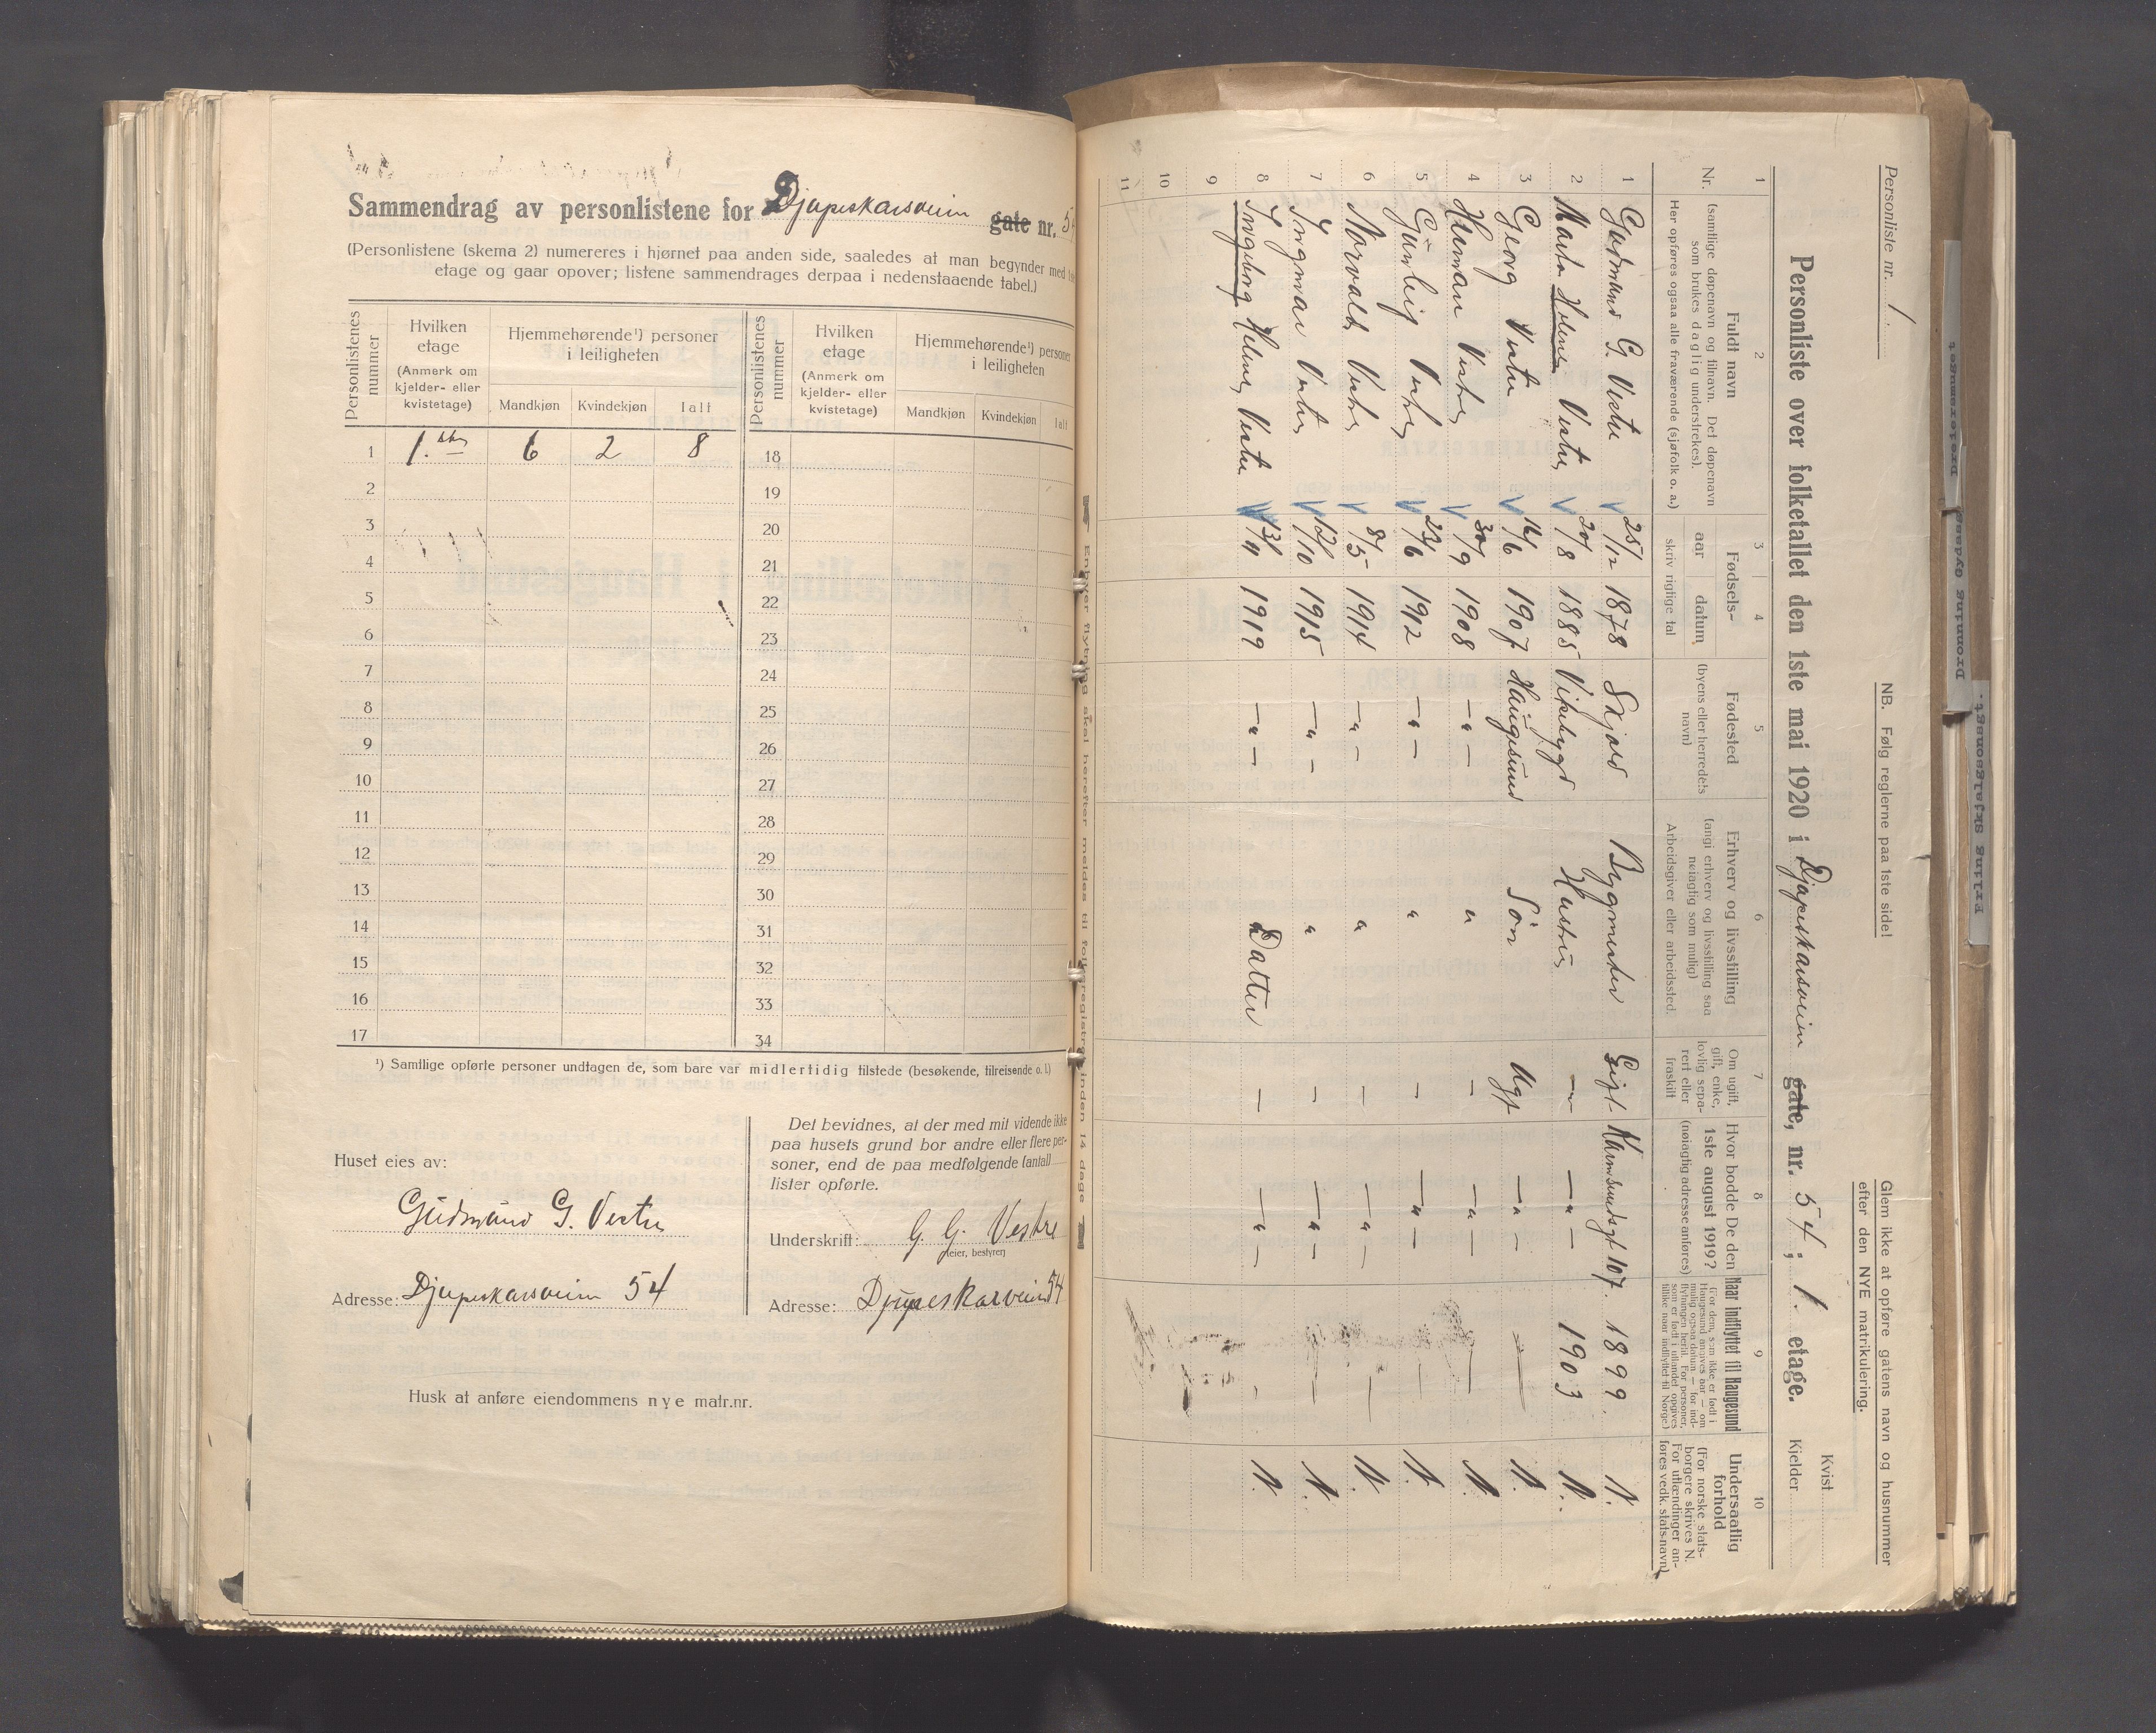 Sammendrag av personlistene for Djupeskarsveien gate nr. 5
(Personlistene (skema 2) numereres i hjørnet paa anden side, saaledes at man begynder med
etage og gaar opover; listene sammendrages derpaa i nedenstaaende tabel.)
Personlistenes nummer
Hvilken etage (Anmerk om kjelder- eller kvistetage)
Hjemmehørende¹) personer i leiligheten
Mandkjøn Kvindekjøn Ialt
Personlistenes nummer
Hvilken etage (Anmerk om kjelder- eller kvistetage)
Hjemmehørende¹) personer i leiligheten
Mandkjøn Kvindekjøn Ialt
1 1. 6 2 8 18
2 19
3 20
4 21
5 22
6 23
7 24
8 25
9 26
10 27
11 28
12 29
13 30
14 31
15 32
16 33
17 34
¹) Samtlige opførte personer undtagen de, som bare var midlertidig tilstede (besøkende, tilreisende o. l.)
Huset eies av:
Gudmund G. Vestre
Adresse: Djupeskarsveien 54
Det bevidnes, at der med mit vidende ikke
paa husets grund bor andre eller flere per-
soner, end de paa medfølgende (antal)
lister opførte.
Underskrift: G. G. Vestre
(eier, bestyrer)
Adresse: Djupeskarveien 54
Husk at anføre eiendommens nye matr.nr.
Enhver flytning skal herefter meldes til folkeregistret inden 14 dage
Personliste nr. 1.
NB. Følg reglerne paa 1ste side!
Glem ikke at opføre gatens navn og husnummer
efter den NYE matrikulering.
Personliste over folketallet den 1ste mai 1920 i Djupeskarsveien gate, nr. 54; 1. etage.
Kvist
Kjelder
1 2 3 4 5 6 7 8 9 10
Nr.
Fuldt navn
(samtlige døpenavn og tilnavn. Det døpenavn
som brukes daglig understrekes).
Her opføres ogsaa alle fraværende (sjøfolk o. a.)
Fødsels-
aar datum
skriv rigtige tal
Fødested
(byens eller herredets
navn)
Erhverv og livsstilling
(angi erhverv og livsstilling saa
nøiagtig som mulig)
Arbeidsgiver eller arbeidssted.
Om ugift,
gift, enke,
lovlig sepa-
rert eller
fraskilt
Hvor bodde De den
1ste august 1919?
(nøiagtig adresse anføres)
Naar indflyttet til Haugesund
(For dem, som ikke er født i
Haugesund anføves aar — om
mulig ogsaa datum — for ind-
flytningen hertil. For personer,
som er født i utlandet opgives
tillike naar indflyttet til Norge.)
Undersaatlig
forhold
(For norske stats-
borgere skrives N.
For utlændinger an-
føres vedk. statsnavn)
1 Gudmund G. Vestre 25/12 1878 Skjold Bygmester Gift Karmsundsgt 107. 1899. N.
2 Marta Helene Vestre 20/8 1885 Vikebygd Hustru — — " — 1903 N.
3 Georg Vestre 14/6 1907 Haugesund Søn Ugf — " — — N.
4 Herman Vestre 30/9 1908 — " — " — — " — — N.
5 Gunleif Vestre 23/6 1912 — " — " — — " — — N.
6 Norvald Vestre 8/5 1914 — " — " — — " — — N.
7 Ingmar Vestre 12/10 1915 — " — " — — " — — N.
8 Ingeborg Helene Vestre 13/4 1919 — " — Datter — — " — — N.
9
10
11
Dronning Gydas
Erling Skjalgsonsgt.